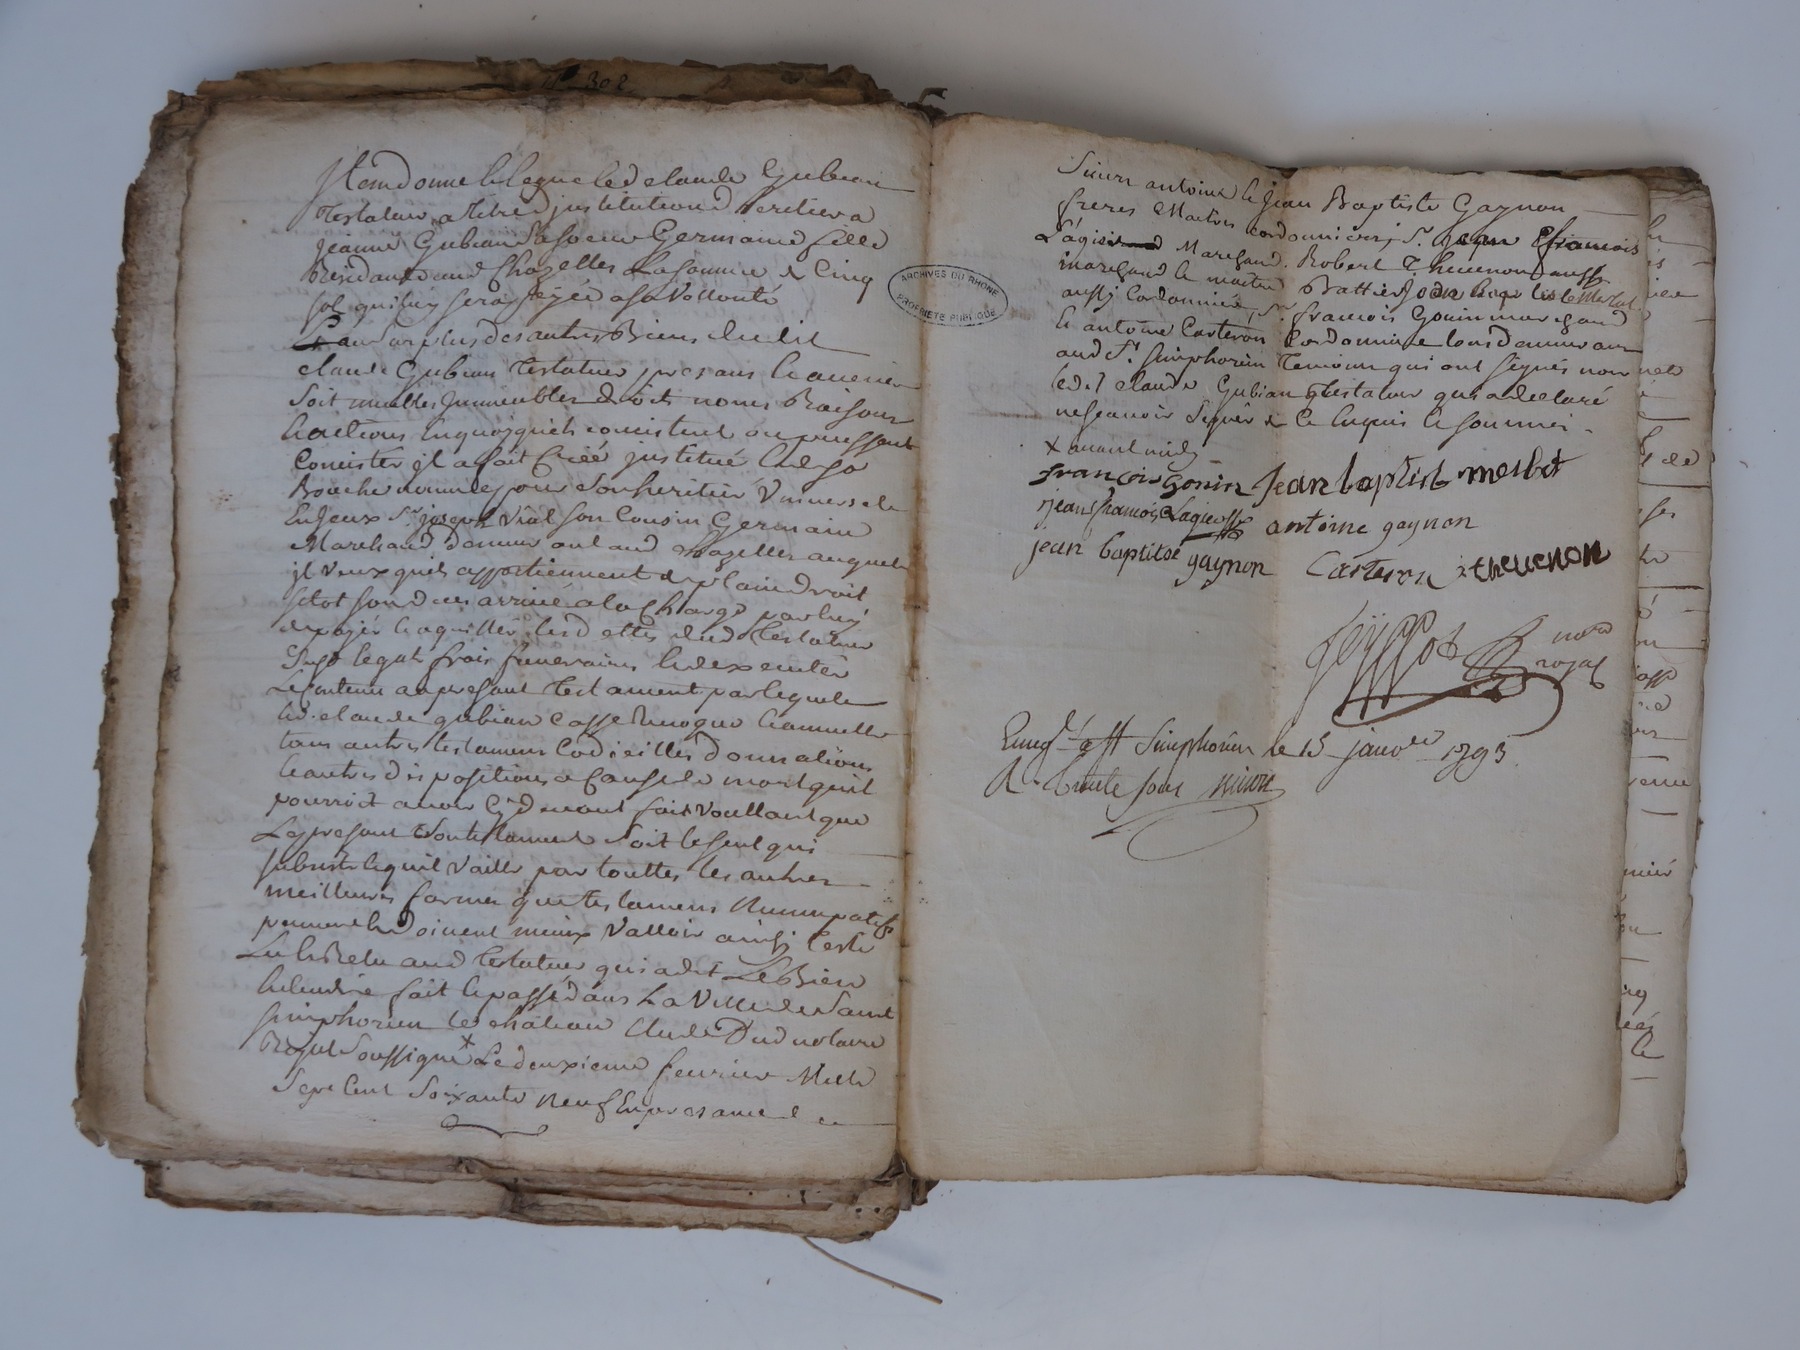 N° 302
Item donne & legue led claude Gubian
testateur a titre d'institution d'heritiere a
jeanne Gubian sa soeur Germaine fille
Residante aud Chazelles La somme de Cinq
sol qui luy sera payée a sa vollonté
Et au surplus des autres Biens dudit
claude Gubian testateur presans & avenir
soit meubles jmmeubles droits noms Raisons
& actions en quoy quils consistent ou puissent
Consister jl a fait Créé jnstitué & de sa
Bouche nommé pour son heritier Universele
Sr joseph Vial son Cousin Germain
Marchand demeurant aud chazelles auquel
jl veux quils appartiennent de plain droit
sitot son deces arrivé a la Charge par luy
de payér & aquittér les dettes dud testateur
legats frais funeraires & dexecutér
Le contenu au present testament par lequel
led. claude gubian Casse Revoque & annulle
tous autres testamens Codicilles donnations
& autres dispositions a Cause de mort quil
pourroit avoir Cy devant fait voullant que
Le present testament soit le seul qui
subsiste & quil vaille par touttes les autres
meilleures formes que testamens Nuncupatifs
peuvent & doivent mieux Valloir ainsy teste
Lu & Relu aud testateur qui a dit Le Bien
fait & passé dans La Ville de Saint
simphorien le château Etude Dud notaire
Royal Soussigné x Le deuxieme fevrier Mille
Sept Cent Soixante Neuf En presance de
ARCHIVES DU RHONE
PROPRIETE PUBLIQUE
Sieurs antoine & Jean Baptiste Gaynon
freres Maitres Cordonniers, Sr. jean francois
Marchand. Robert Thevenon aussy
marchand & maitre Jean Baptiste Merlat
aussy Cordonnier, Sr. francois Gonin marchand
& antoine Carteron Cordonnier tous demeurant
aud St. simphorien temoins qui ont signés non
led. claude Gubian testateur qui a declaré
ne scavoir signér de Ce enquis & sommé.
x avant midy
françois gonin jean baptiste merlat
jean francois antoine gaynon
jean baptitse gaynon Carteron thevenon
nore
royal
St Simphorien le 15 janver
R. trente sous